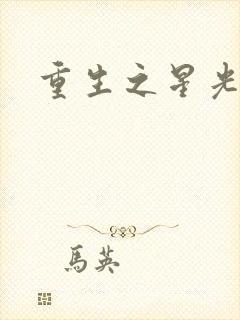 重生之星光
馬英